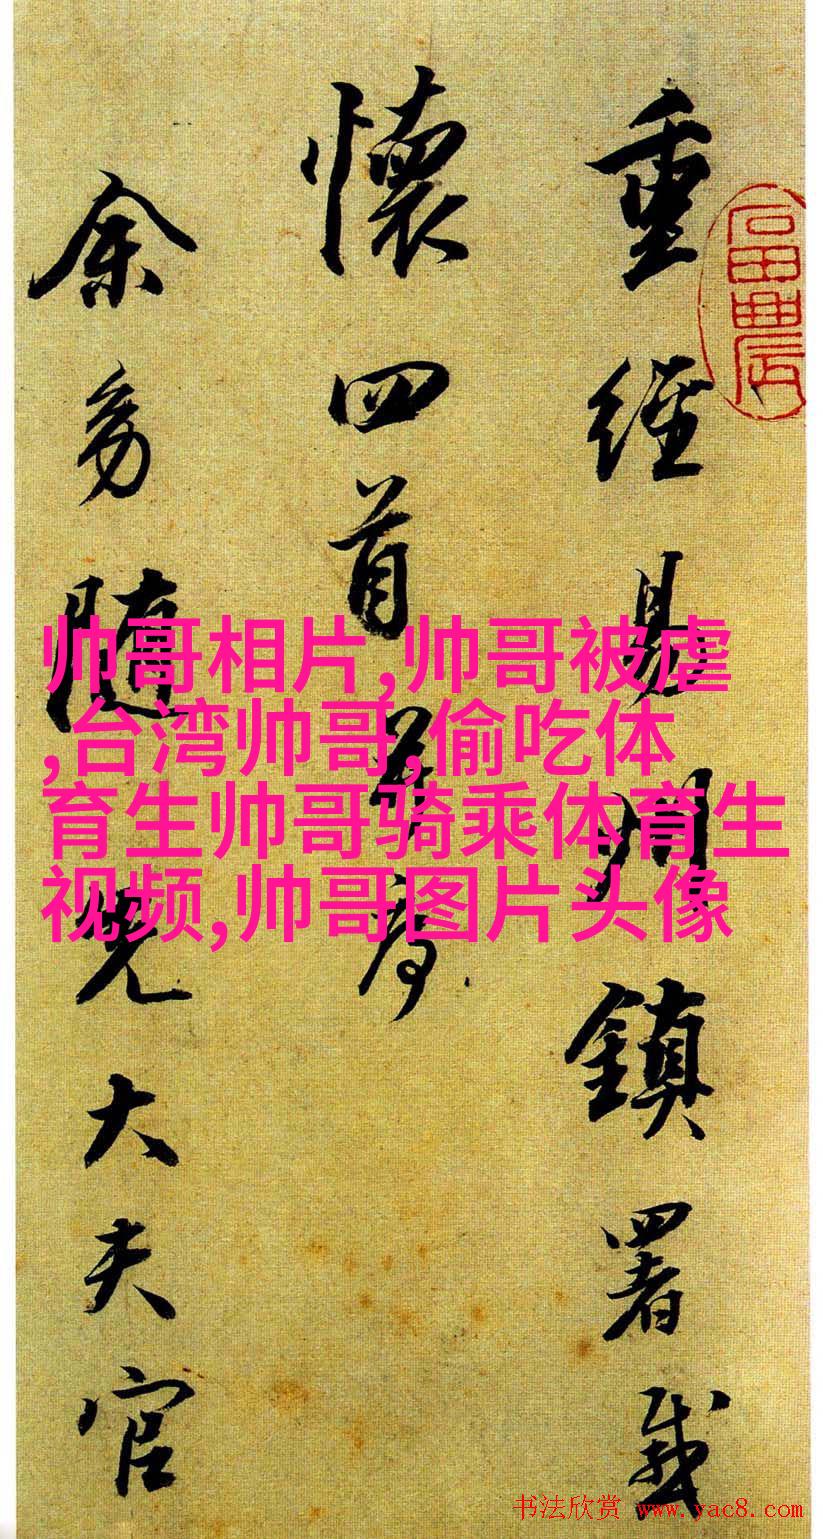 重經易州鎮署感
懷四首并序
余幼隨先大夫官
帅哥相片,帅哥被虐
,台湾帅哥,偷吃体
育生帅哥骑乘体育生
视频,帅哥图片头像
书法欣赏 www.yac8.com